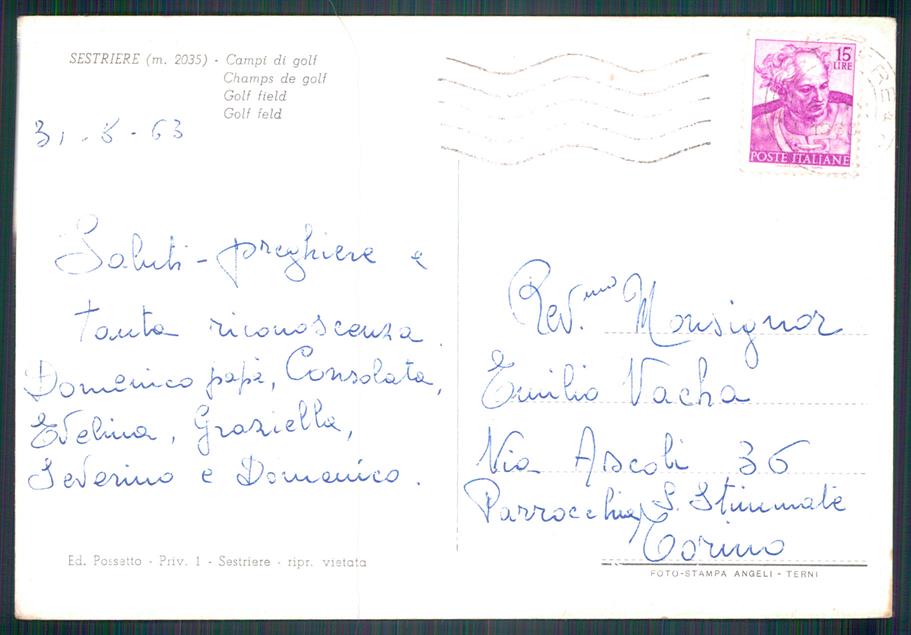 SESTRIERE (m. 2035) - Campi di golf
Champs de golf
Golf field
Golf feld
31 - 8 - 63
Saluti - preghiere e
tanta riconoscenza.
Domenico papà, Consolata,
Evelina, Graziella,
Severino e Domenico.
Ed. Possetto - Priv. 1 - Sestriere - ripr. vietata
15
LIRE
POSTE ITALIANE
Rev.mo Monsignor
Emilio Vacha
Via Ascoli 36
Parrocchia S. Stimmate
Torino
FOTO-STAMPA ANGELI - TERNI